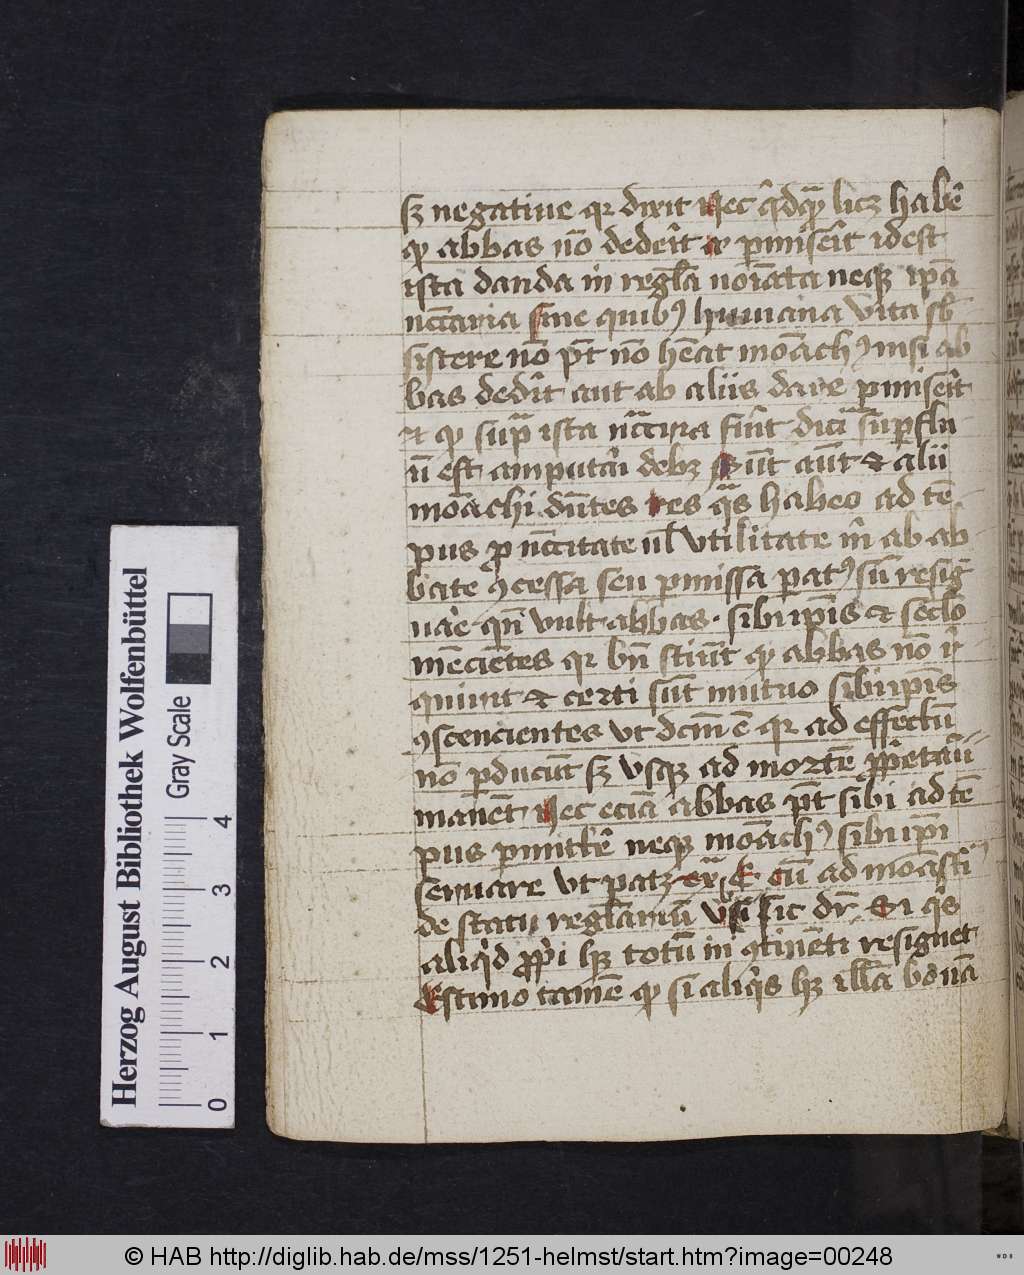 sꝫ negatiue qꝛ dixit Nec q̂dqᷓ licꝫ habē
ꝙ abbas nō dedeīt aut pmiseīt idest
ista danda in regl̄a noīata neqꝫ ip̄a
nccāria sine quibꝰ humana vita sb̄
sistere nō pt̄ nō hēat monachꝰ nisi ab
bas dedit̄ aut ab aliis dare pmiseīt
et ꝙ supᷓ ista nccāria fuīt dicī superflu
ū est amputari debꝫ Sūt aūt et alii
monachi dn̄tes res qᷓs habeo ad tē
pus ꝓ nccītate ul vtilitate m̄ ab ab
bate ꝯcessa seu pmissa patꝰ sū resig
nāre qn̄ vult abbas · sibi ipīs et secl̄o
mēciētes qꝛ bn̄ sciūt ꝙ abbas nō
quirit et certi sūt mutuo sibi ipīs
ꝯscencientes vt dcm̄ ē qꝛ ad effectū
nō pducūt sꝫ vsqꝫ ad mortē ꝓprietarii
manēt Nec eciā abbas pt̄ sibi ad tē
pus pmittē neqꝫ monachꝰ sibi ipī
seruare vt patꝫ exᷓ Cū ad monasti
de statu regl̄ariū vbi sic dr̄ Si qis
aliqid ꝓpri hꝫ totū in ꝯtinēti resignet
Estimo tamē ꝙ si aliqis hꝫ illā bonā
Herzog August Bibliothek Wolfenbüttel
Gray Scale
0 1 2 3 4
© HAB http://diglib.hab.de/mss/1251-helmst/start.htm?image=00248